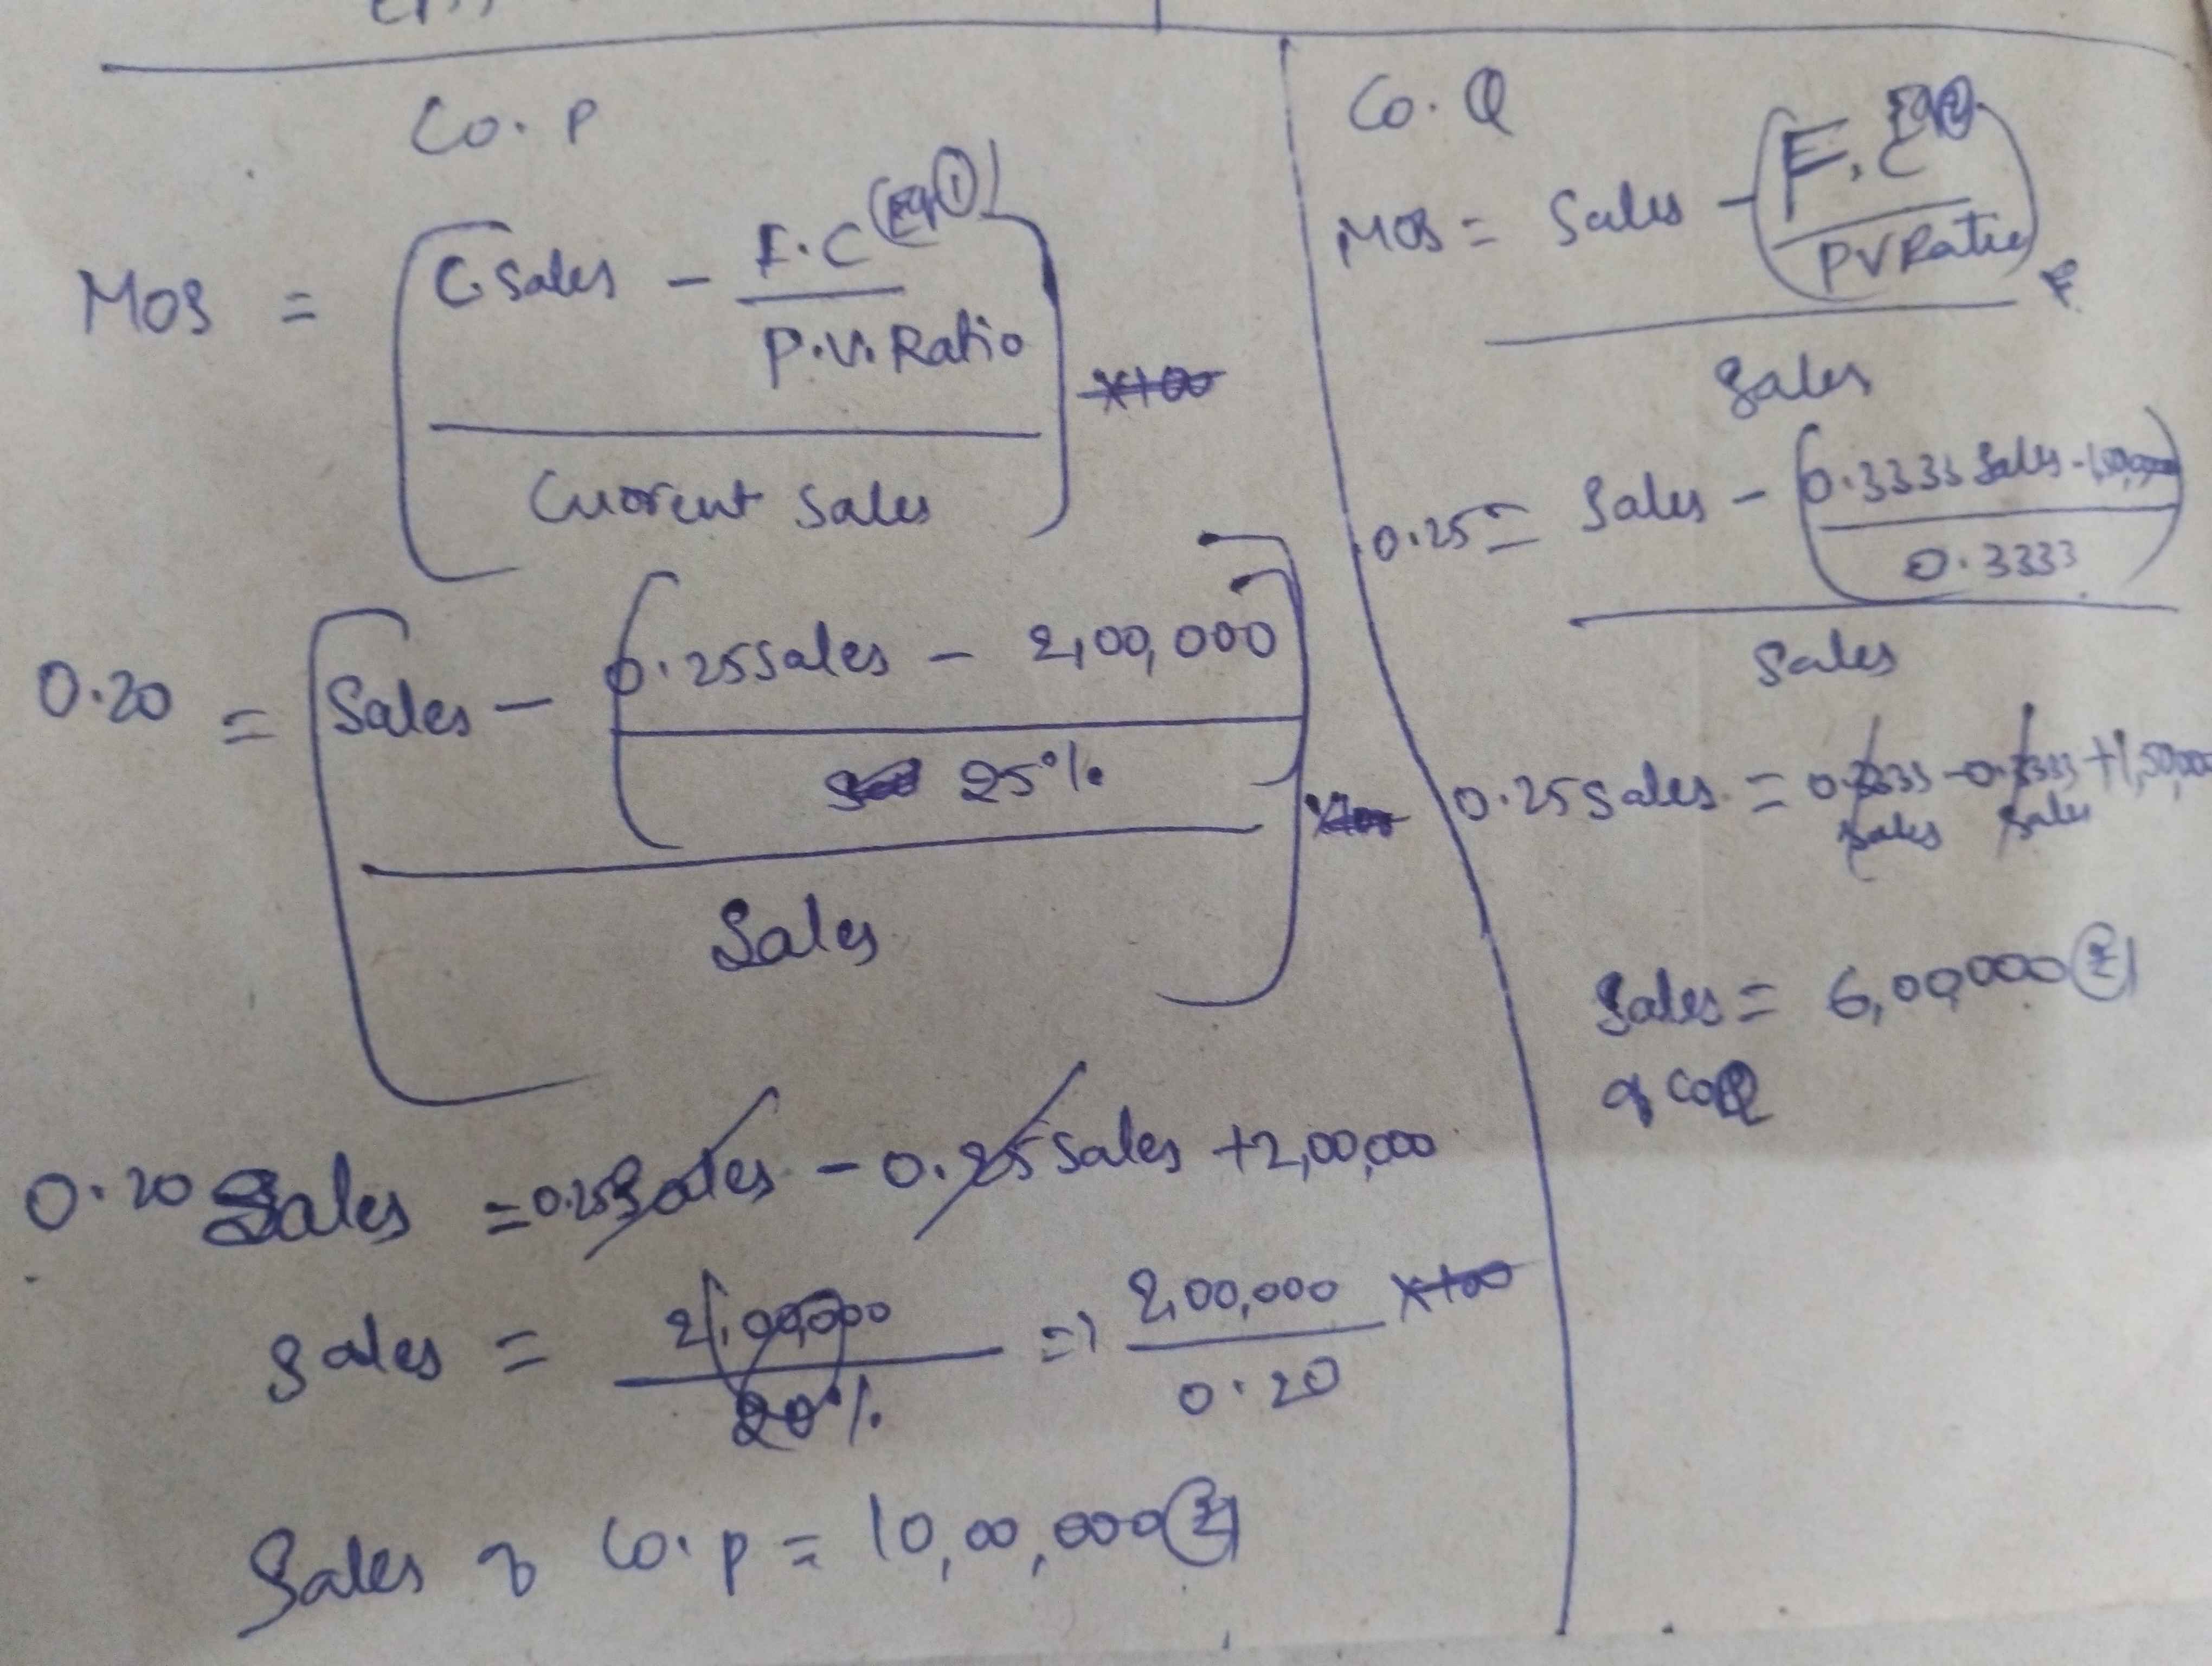 Co. P
MOS = [C. Sales - F.C (Eq ①) / P.V. Ratio] / Current Sales
0.20 = [Sales - (0.25 Sales - 2,00,000 / 25%)] / Sales
0.20 Sales = 0.25 Sales - 0.25 Sales + 2,00,000
Sales = 2,00,000 / 20% => 2,00,000 / 0.20 x100
Sales of Co. P = 10,00,000 ₹
Co. Q
MOS = Sales - (F.C Eq ② / PV Ratio) / Sales
0.25 = Sales - (0.3333 Sales - / 0.3333) / Sales
0.25 Sales = 0.3333 Sales - 0.3333 Sales + 1,50,000
Sales = 6,00,000 ₹
of Co Q